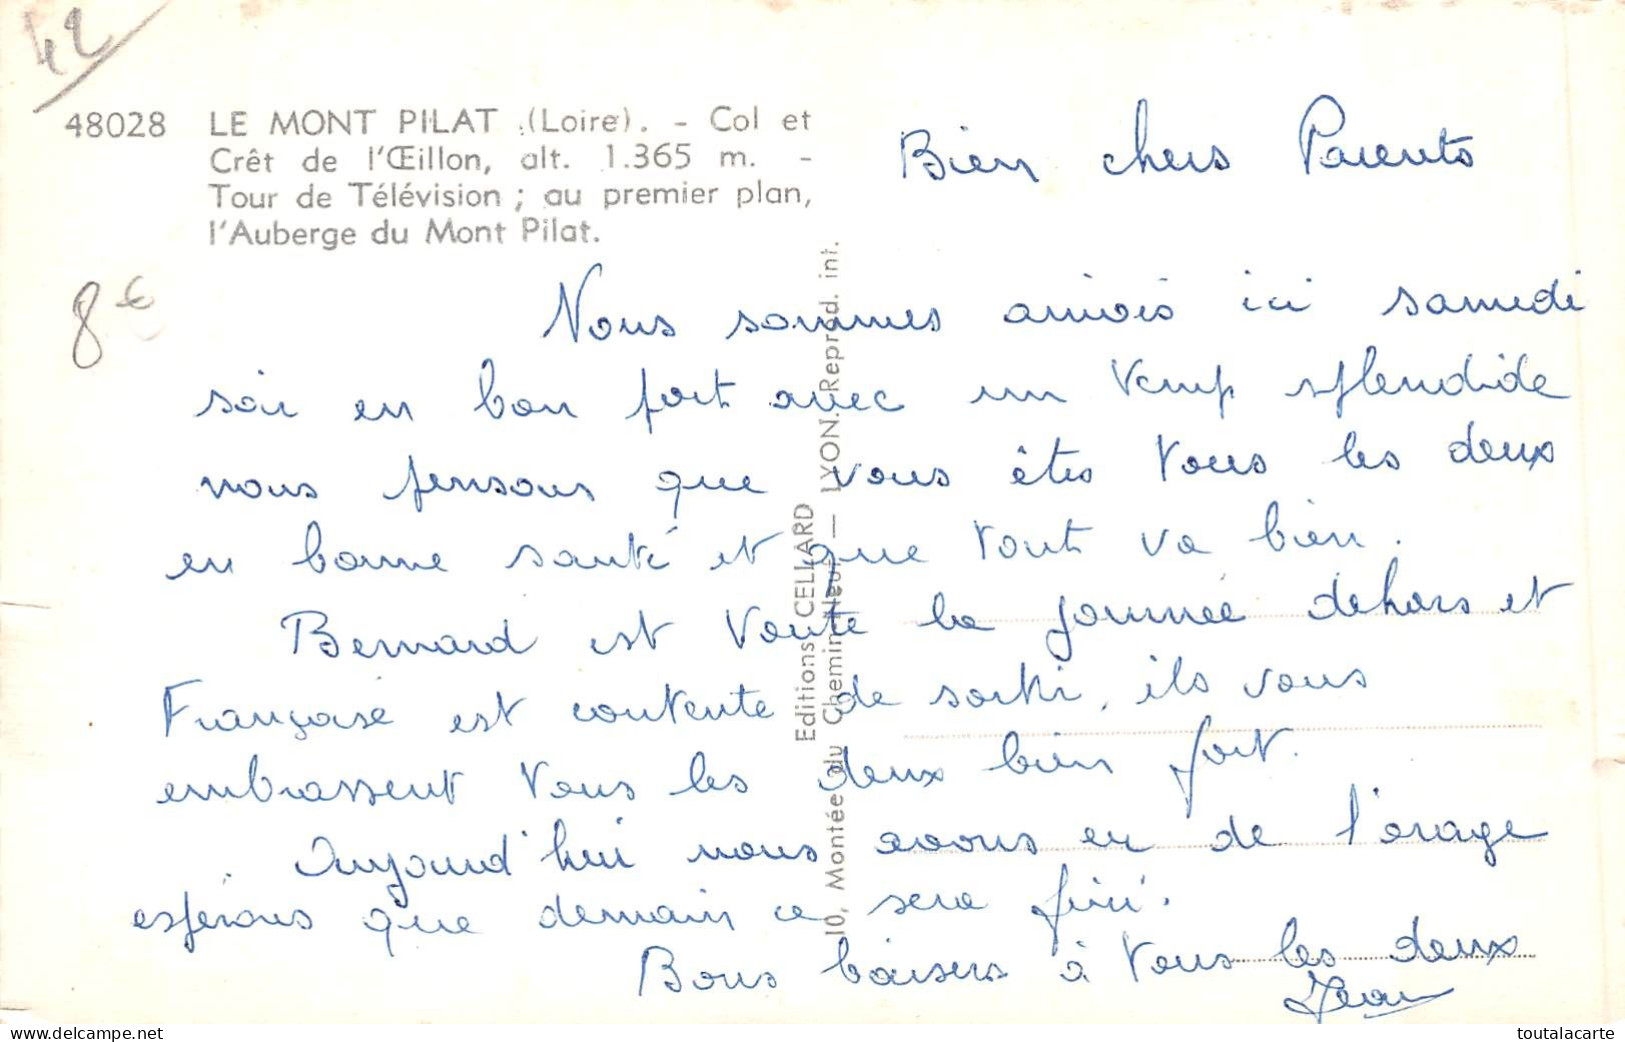 42
48028 LE MONT PILAT (Loire). - Col et
Crêt de l'Œillon, alt. 1.365 m. -
Tour de Télévision ; au premier plan,
l'Auberge du Mont Pilat.
8€
Bien chers Parents
Nous sommes arrivés ici samedi
soir en bon port avec un temp splendide
nous pensons que vous êtes tous les deux
en bonne santé et que tout va bien.
Bernard est toute la journée dehors et
Françoise est contente de sortir, ils vous
embrassent tous les deux bien fort.
Aujourd'hui nous avons eu de l'orage
espérons que demain ce sera fini.
Bons baisers à tous les deux
Jean
Editions CELLARD
10, Montée du Chemin-Neuf — LYON. Reprod. int.
delcampe.net
toutalacarte